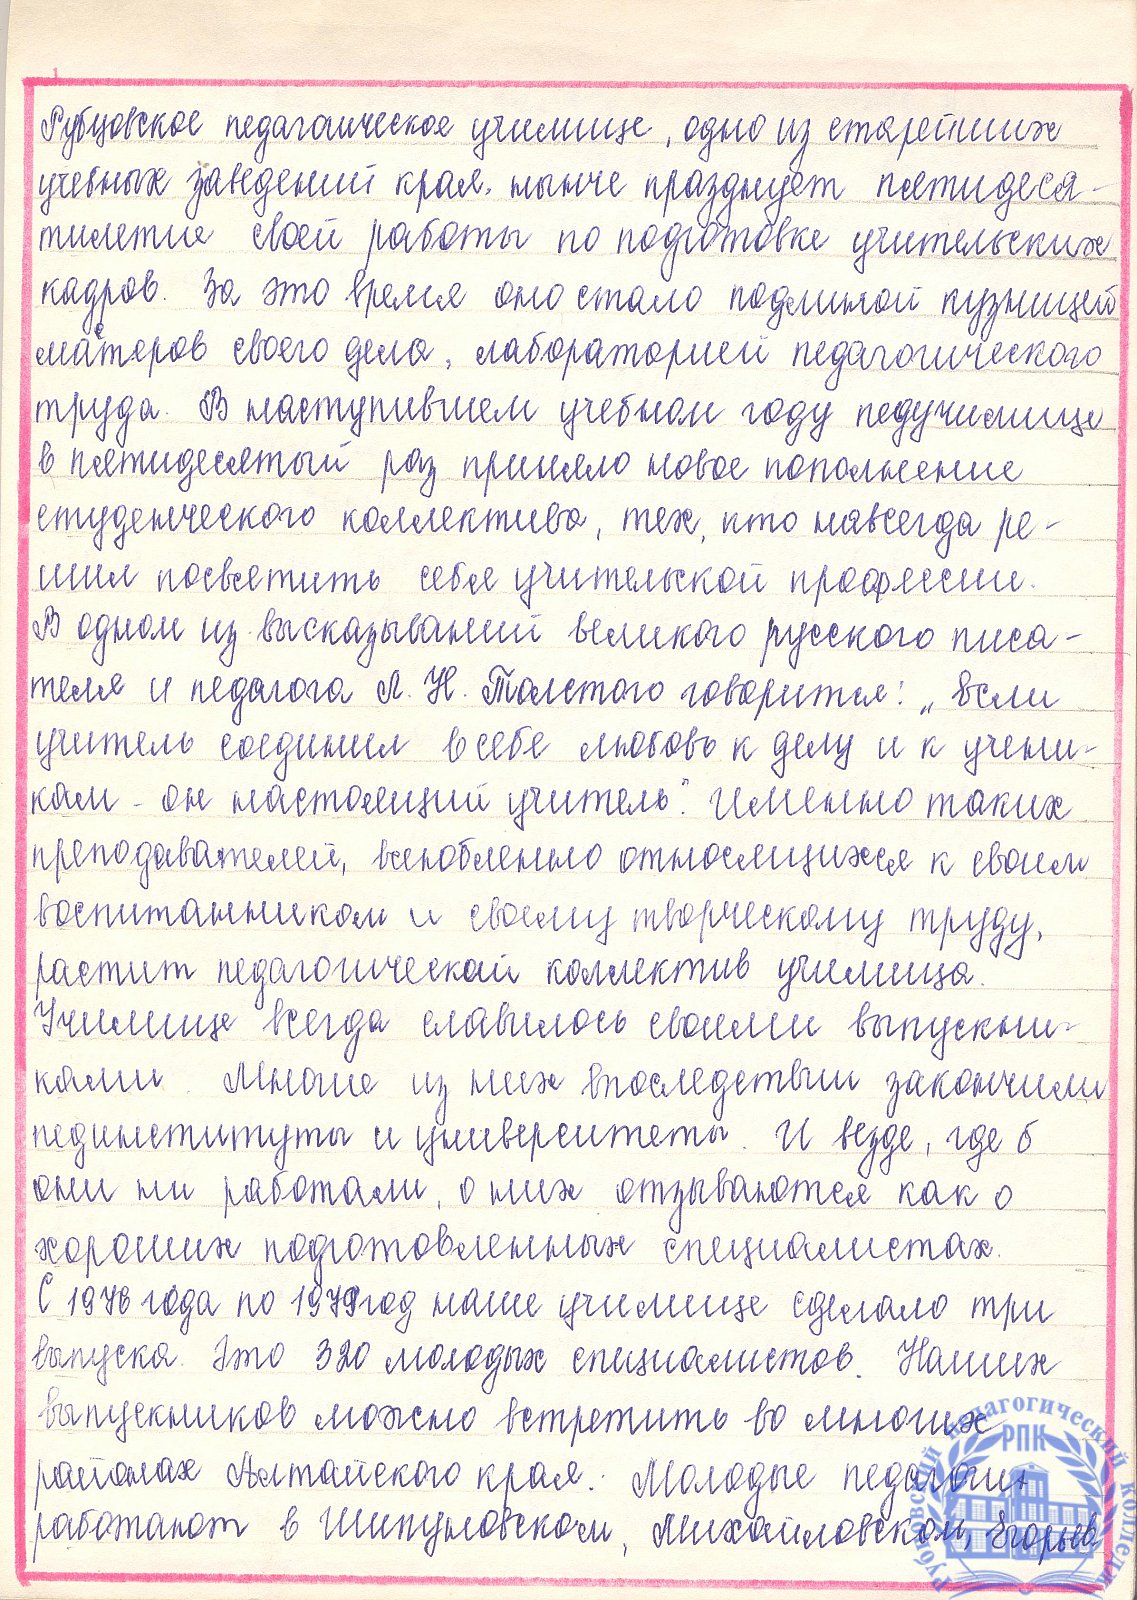 Рубцовское педагогическое училище, одно из старейших
учебных заведений края, нынче празднует пятидеся-
тилетие своей работы по подготовке учительских
кадров. За это время оно стало подлиной кузницей
мастеров своего дела, лабораторией педагогического
труда. В наступившем учебном году педучилище
в пятидесятый раз приняло новое пополнение
студенческого коллектива, тех, кто навсегда ре-
шил посвятить себя учительской профессии.
В одном из высказываний великого русского писа-
теля и педагога Л. Н. Толстого говорится: „Если
учитель соединил в себе любовь к делу и к учени-
кам - он настоящий учитель." Именно таких
преподавателей, влюбленно относящихся к своим
воспитанникам и своему творческому труду,
растит педагогический коллектив училища.
Училище всегда славилось своими выпускни-
ками. Многие из них впоследствии закончили
пединституты и университеты. И везде, где б
они ни работали, о них отзываются как о
хороших подготовленных специалистах.
С 1976 года по 1979 год наше училище сделало три
выпуска. Это 320 молодых специалистов. Наших
выпускников можно встретить во многих
районах Алтайского края. Молодые педагоги
работают в Шипуновском, Михайловском, Егорьев
Рубцовский педагогический колледж
РПК